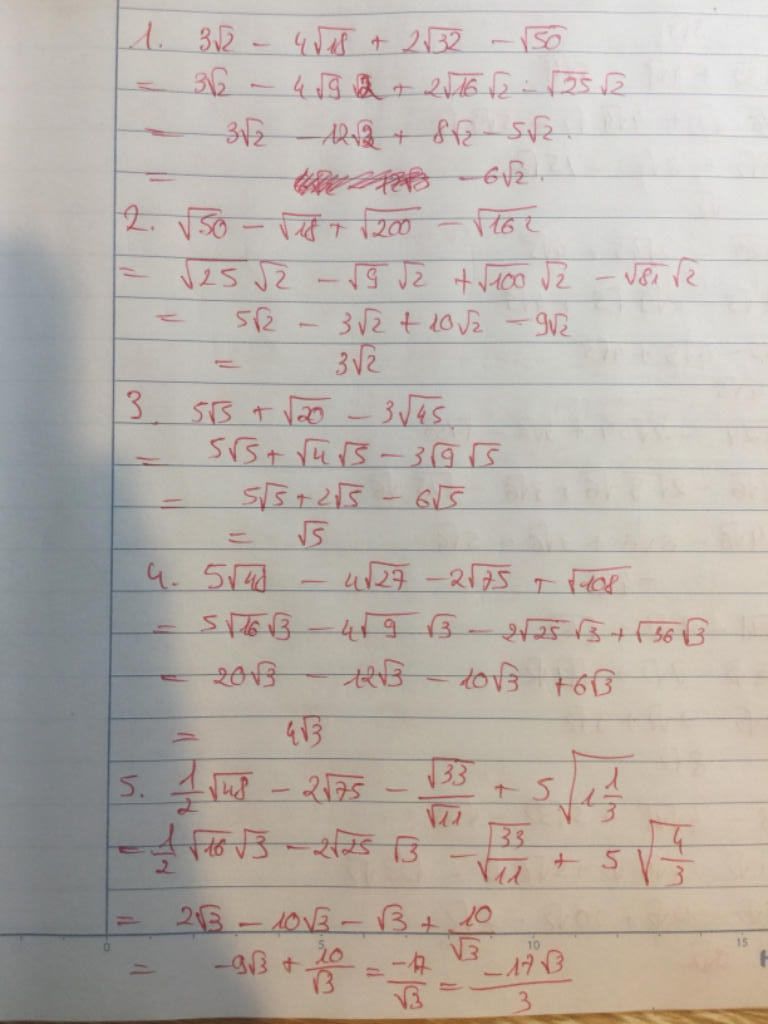 1. 3√2 - 4√18 + 2√32 - √50
= 3√2 - 4√9 √2 + 2√16 √2 - √25 √2
= 3√2 - 12√2 + 8√2 - 5√2.
= -6√2.
2. √50 - √18 + √200 - √162
= √25 √2 - √9 √2 + √100 √2 - √81 √2
= 5√2 - 3√2 + 10√2 - 9√2
= 3√2
3. 5√5 + √20 - 3√45.
= 5√5 + √4 √5 - 3√9 √5
= 5√5 + 2√5 - 6√5
= √5
4. 5√48 - 4√27 - 2√75 + √108
= 5√16 √3 - 4√9 √3 - 2√25 √3 + √36 √3
= 20√3 - 12√3 - 10√3 + 6√3
= 4√3
5. 1/2 √48 - 2√75 - √33/√11 + 5√(1 1/3)
= 1/2 √16 √3 - 2√25 √3 - √(33/11) + 5√(4/3)
= 2√3 - 10√3 - √3 + 10/√3
0 5 10 15
= -9√3 + 10/√3 = -17/√3 = -17√3/3